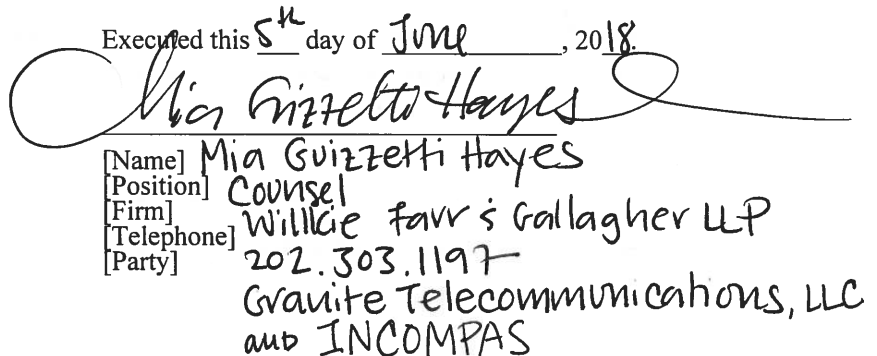 Executed this 5th day of June, 2018.
Mia Guizzetti Hayes
[Name] Mia Guizzetti Hayes
[Position] Counsel
[Firm] Willkie Farr & Gallagher LLP
[Telephone] 202.303.1197
[Party] Granite Telecommunications, LLC
and INCOMPAS